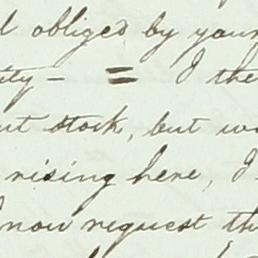 obliged by your
ity — = I the
ut stock, but w
rising here, I
now request th